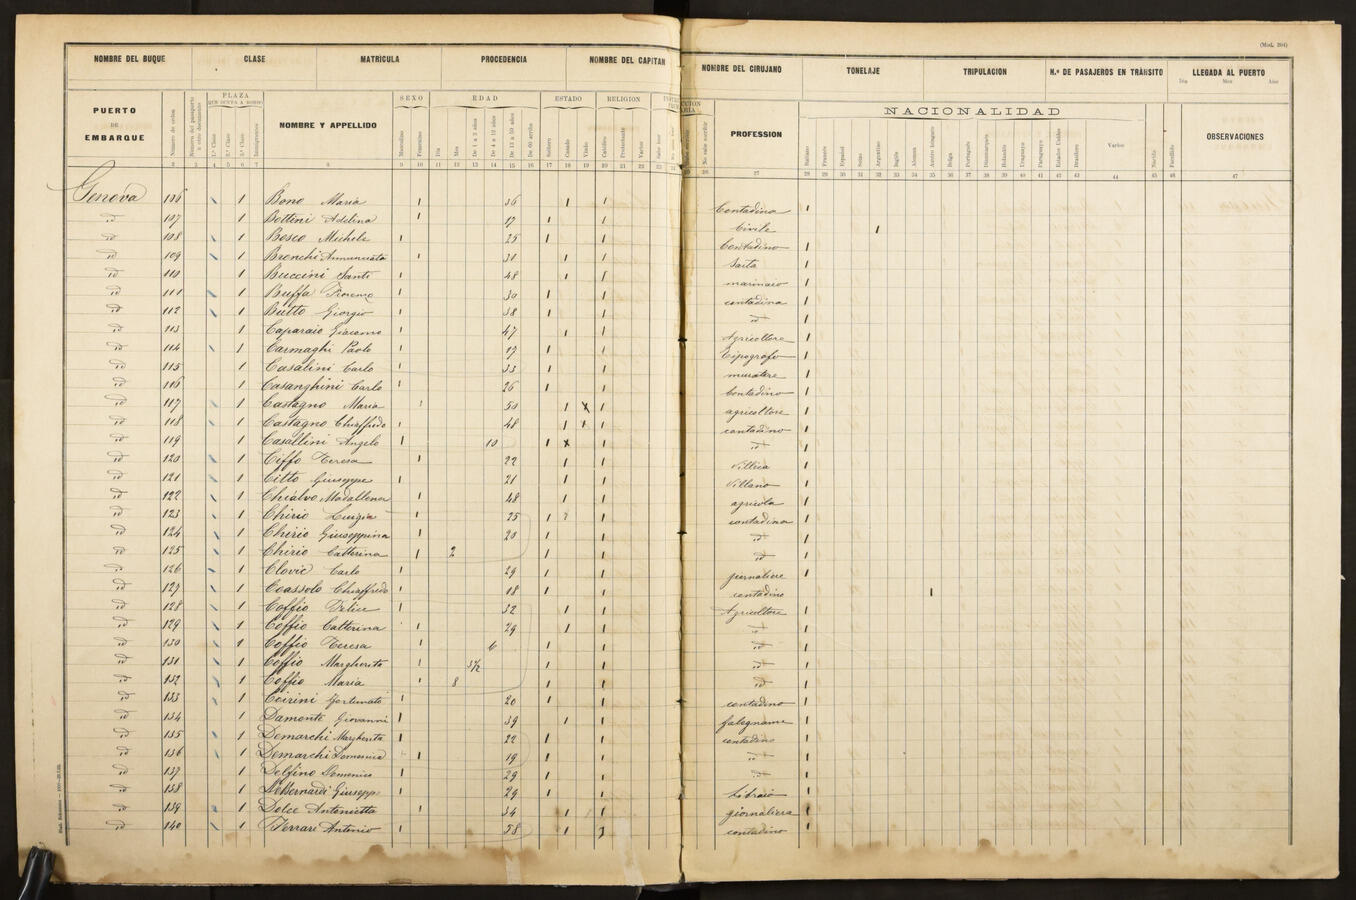 (Mod. 204)
NOMBRE DEL BUQUE CLASE MATRÍCULA PROCEDENCIA NOMBRE DEL CAPITAN NOMBRE DEL CIRUJANO TONELAJE TRIPULACION N.º DE PASAJEROS EN TRÁNSITO LLEGADA AL PUERTO
Día Mes Año
PUERTO DE EMBARQUE Número de orden PLAZA NOMBRE Y APELLIDO SEXO EDAD ESTADO RELIGION PROFESSION NACIONALIDAD OBSERVACIONES
Masculino Femenino Día Mes De 1 a 3 años Soltero Casado Viudo Católico Protestante Varios No sabe escribir Italiano Francés Español Suizo Argentino Inglés Alemán Belga Portugués Dinamarqués Holandés Uruguayo Paraguayo Estados Unidos Brasilero Varios Nacido Fallecido
Genova 106 1 Bono Maria 1 36 1 1 Contadina 1
id 107 1 Bottini Adelina 1 17 1 1 Civile 1
id 108 1 Bosco Michele 1 25 1 1 Contadino 1
id 109 1 Bronchi Annunciata 1 31 1 1 Sarta 1
id 110 1 Buccini Santi 1 48 1 1 marinaio 1
id 111 1 Buffa 1 30 1 1 contadina 1
id 112 1 Butto Giorgio 1 38 1 1 id 1
id 113 1 Caparaio Giacomo 1 47 1 1 Agricoltore 1
id 114 1 Carmaghi Paolo 1 17 1 1 Tipografo 1
id 115 1 Casalini Carlo 1 33 1 1 muratore 1
id 116 1 Casanghini Carlo 1 26 1 1 Contadino 1
id 117 1 Castagno Maria 1 50 1 x 1 agricoltore 1
id 118 1 Castagno Chiaffredo 48 1 1 1 contadino 1
id 119 1 Casallini Angelo 1 10 1 x 1 id 1
id 120 1 Ciffo Teresa 1 22 1 1 Villica 1
id 121 1 Citto Giuseppe 1 21 1 1 Villano 1
id 122 1 Chialvo Madallena 1 48 1 1 agricola 1
id 123 1 Chirio Luigia 1 25 1 1 contadina 1
id 124 1 Chirio Giuseppina 1 20 1 1 id 1
id 125 1 Chirio Catterina 1 2 1 1 id 1
id 126 1 Clovic Carlo 1 29 1 1 giornaliere 1
id 127 1 Coassolo Chiaffredo 1 18 1 1 contadino 1
id 128 1 Coffio Felice 1 32 1 1 Agricoltore 1
id 129 1 Coffio Catterina 1 29 1 1 id 1
id 130 1 Coffio Teresa 1 6 1 1 id 1
id 131 1 Coffio Margherita 1 3½ 1 1 id 1
id 132 1 Coffio Maria 1 8 1 1 id 1
id 133 1 Coirini Fortunato 1 20 1 1 contadino 1
id 134 1 Damonte Giovanni 1 39 1 1 falegname 1
id 135 1 Demarchi Margherita 1 22 1 1 contadino 1
id 136 1 Demarchi Domenica 1 19 1 1 id 1
id 137 1 Delfino Domenico 1 29 1 1 id 1
id 138 1 DeBernardi Giusepp 1 29 1 1 1
id 139 1 Dolce Antonietta 1 34 1 1 giornaliera 1
id 140 1 Ferrari Antonio 1 58 1 1 contadino 1